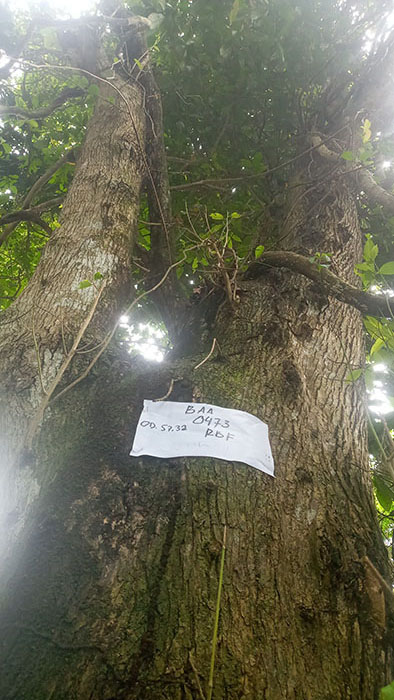 BAA
0473
00.57.32
RBF